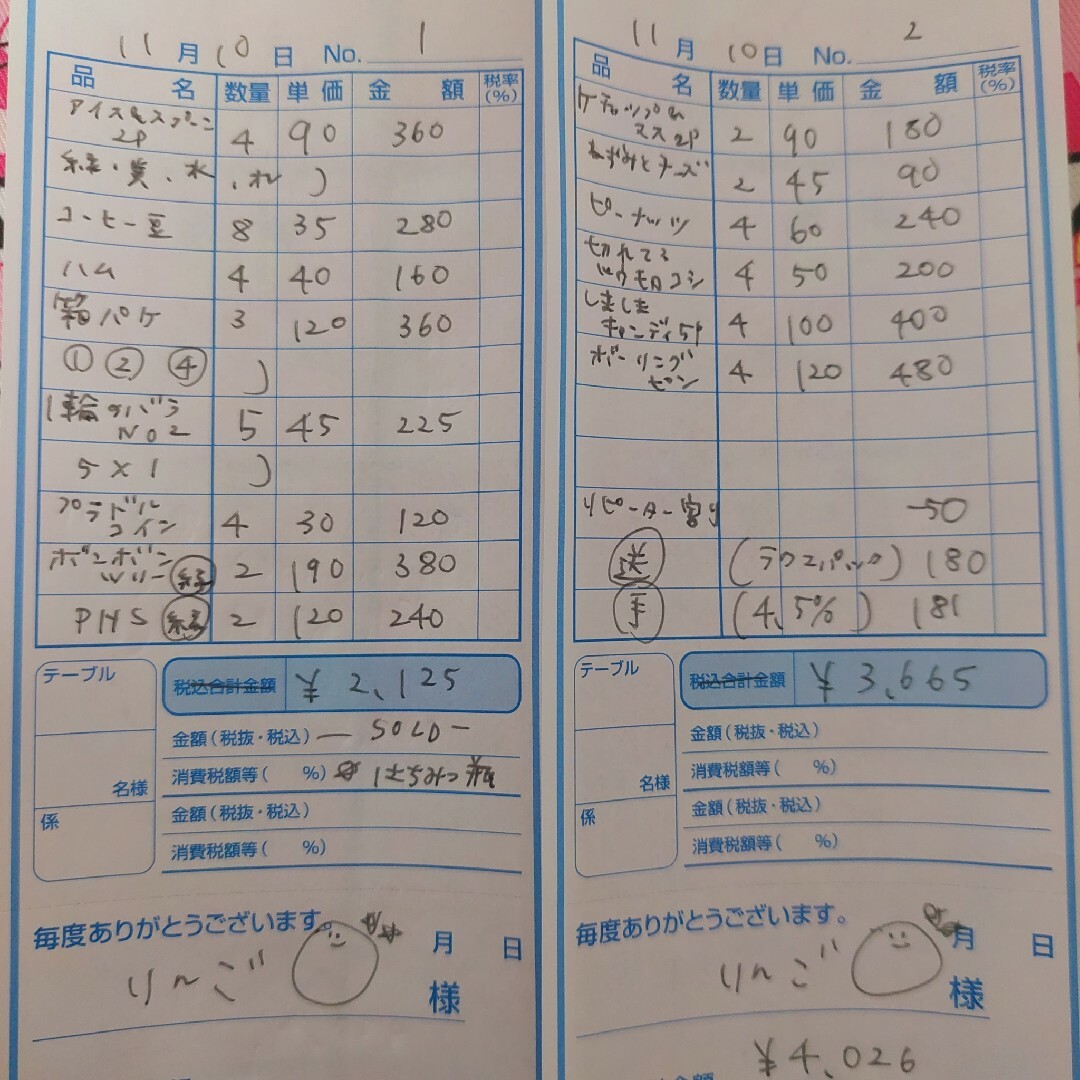 11月10日 No. 1
品名 数量 単価 金額 税率(%)
アイス&スプーン
2P 4 90 360
緑・黄、水、オレ )
コーヒー豆 8 35 280
ハム 4 40 160
箱パケ 3 120 360
① ② ④ )
1輪のバラ
NO2 5 45 225
5×1 )
プラドル
コイン 4 30 120
ボンボン
ツリー 緑 2 190 380
PHS 緑 2 120 240
テーブル
名様
係
税込合計金額 ¥2,125
金額(税抜・税込) ― SOLD ―
消費税額等( %) はちみつ瓶
金額(税抜・税込)
消費税額等( %)
毎度ありがとうございます。
月 日
りんご 様
11月10日 No. 2
品名 数量 単価 金額 税率(%)
ケチャップ&
マス2P 2 90 180
ねずみとチーズ 2 45 90
ピーナッツ 4 60 240
切れてる
トウモロコシ 4 50 200
しましま
キャンディ5P 4 100 400
ボーリング
ピン 4 120 480
リピーター割り -50
送 (テクエパック) 180
手 (4.5%) 181
テーブル
名様
係
税込合計金額 ¥3,665
金額(税抜・税込)
消費税額等( %)
金額(税抜・税込)
消費税額等( %)
毎度ありがとうございます。
月 日
りんご 様
¥4,026